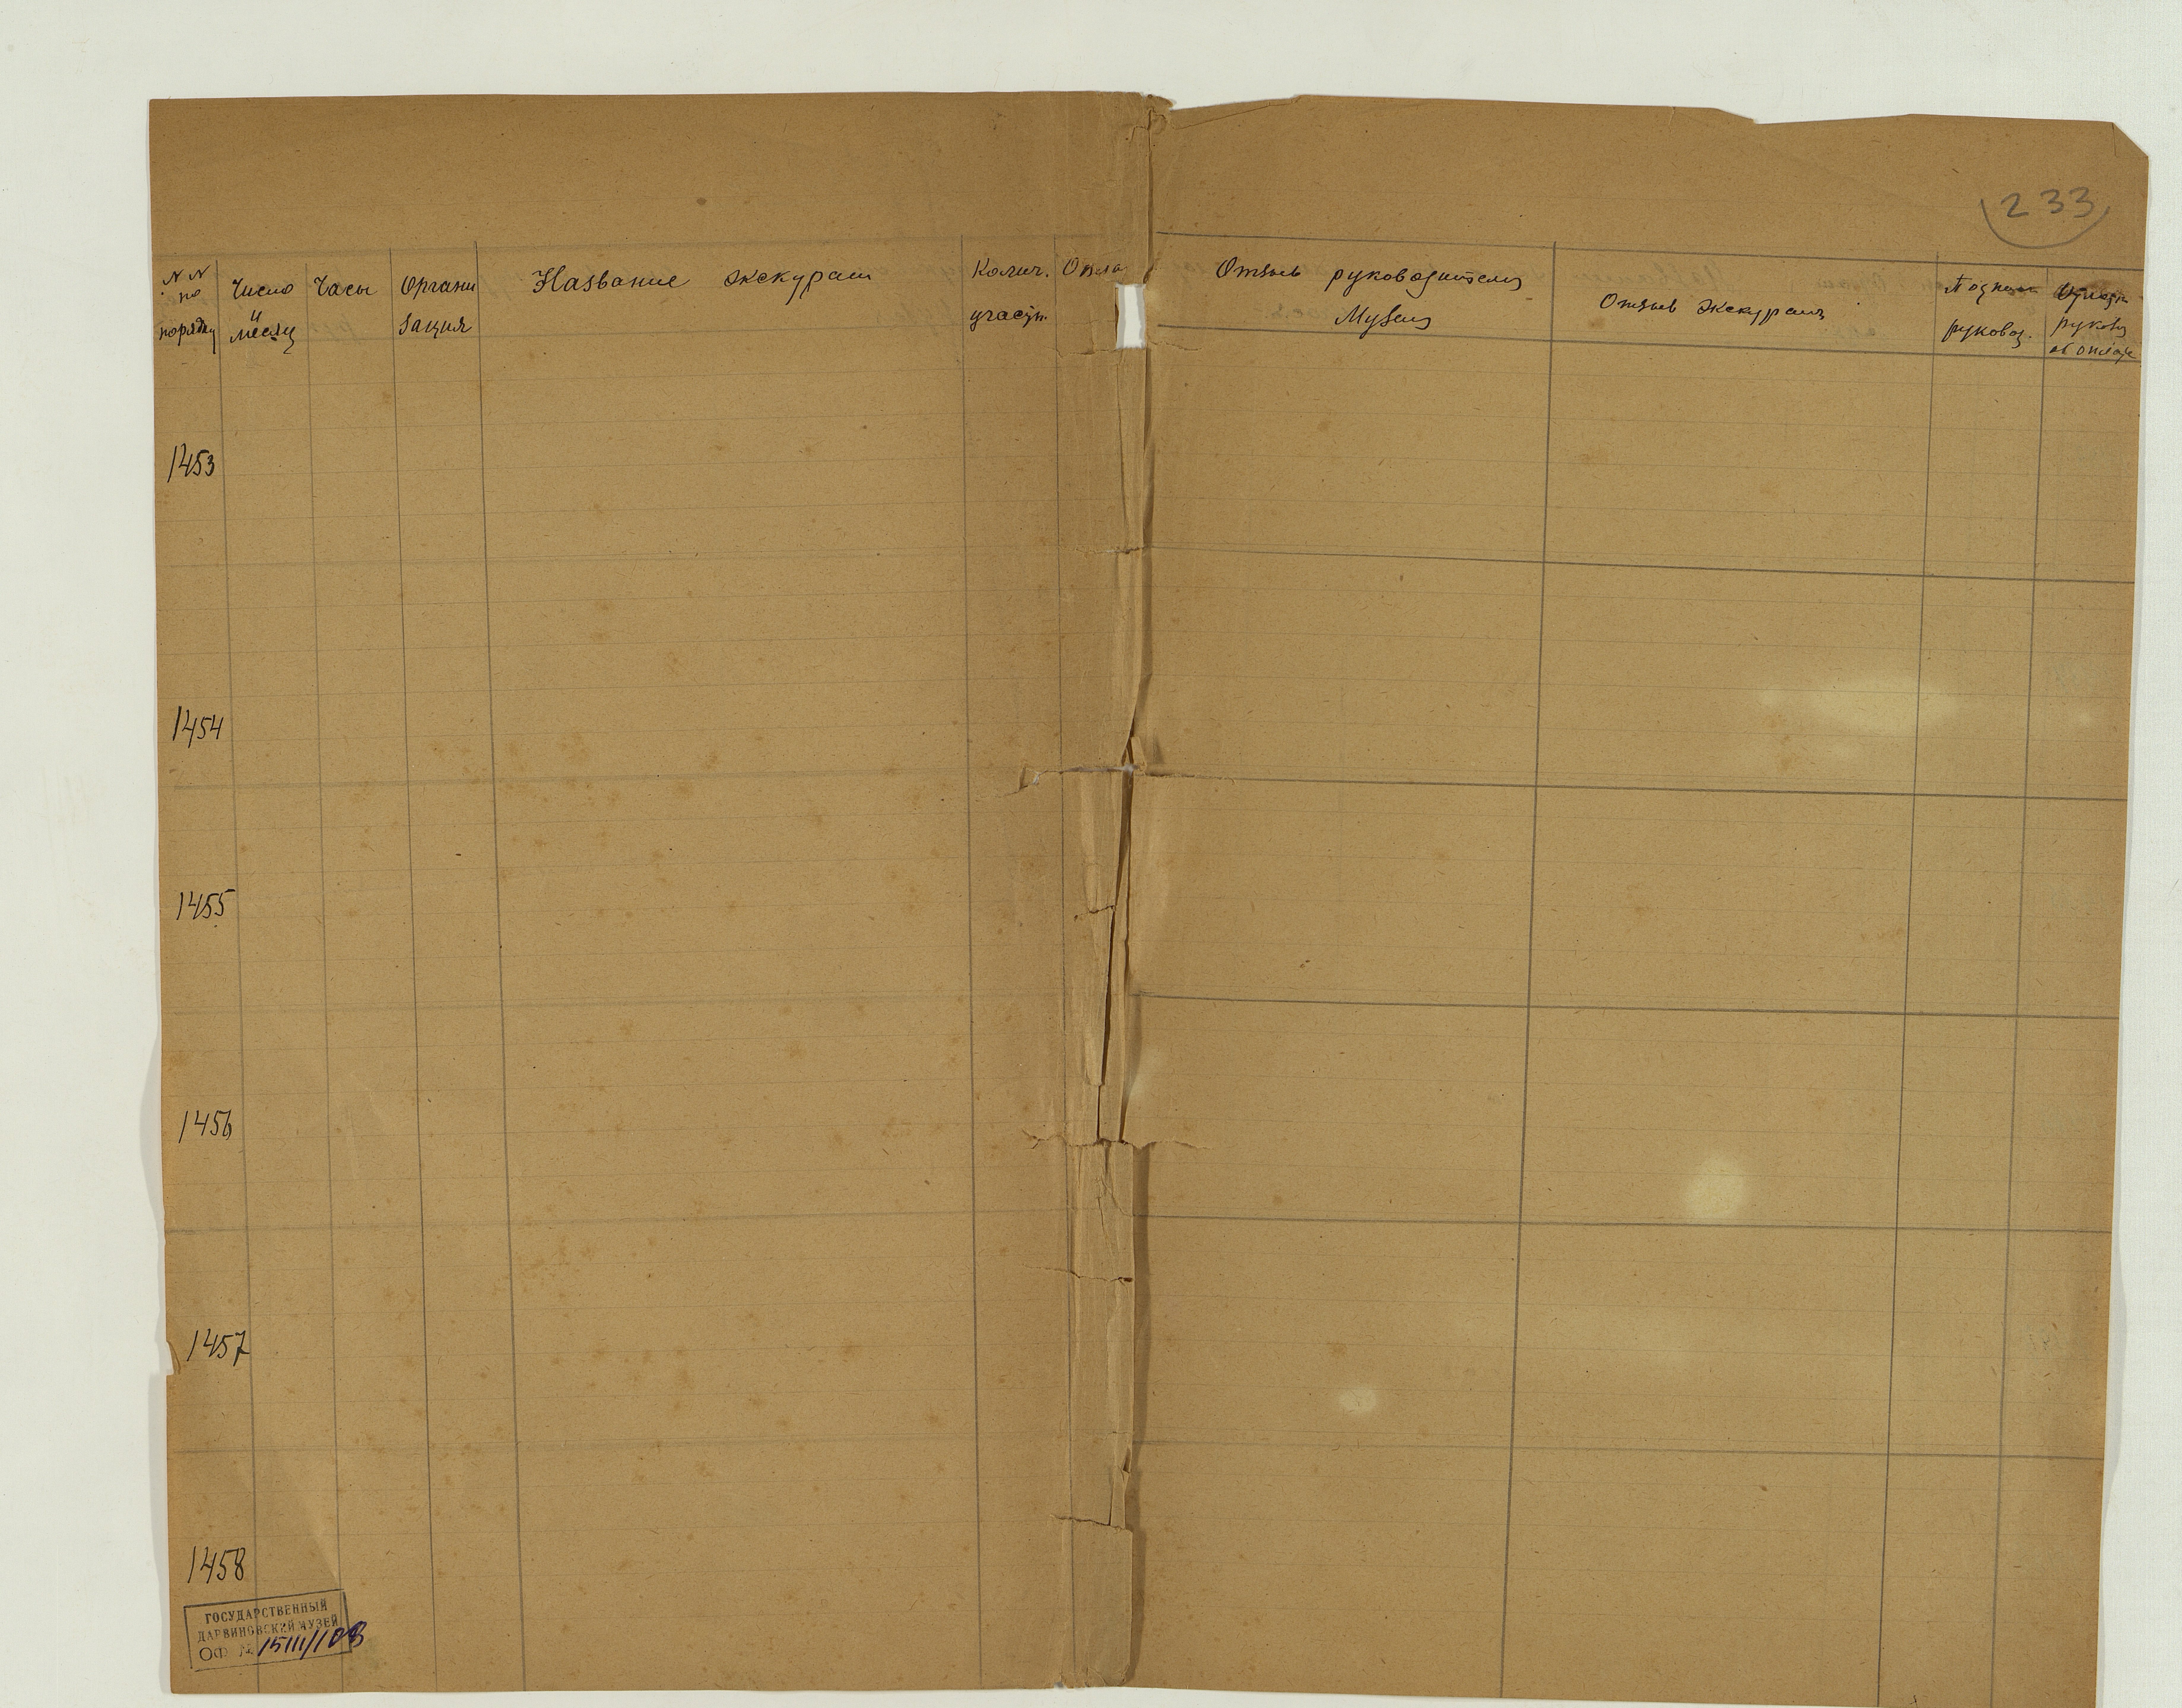 233
N N
по
порядку
Число
и
месяц
Часы
Органи
зация
Название экскурсии
Колич.
участн.
Опла
Отзыв руководителя
Музея
Отзыв экскурсии
Подпись
руковод.
руковод
об оплате
1453
1454
1455
1456
1457
1458
ГОСУДАРСТВЕННЫЙ
ДАРВИНОВСКИЙ МУЗЕЙ
ОФ № 15111/108